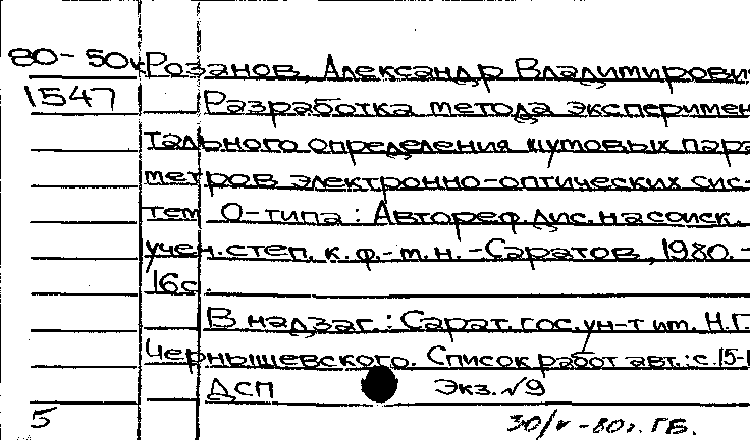 80-50к Розанов, Александр Владимирови
1547 Разработка метода эксперимен
тального определения шумовых пара
метров электронно-оптических сис-
тем О-типа: Автореф. дис. на соиск.
учен. степ. к. ф.-м. н. - Саратов, 1980. -
16с.
В надзаг.: Сарат. гос. ун-т им. Н.Г.
Чернышевского. Список работ авт.: с. 15-1
ДСП Экз. №9
5 -80г. ГБ.